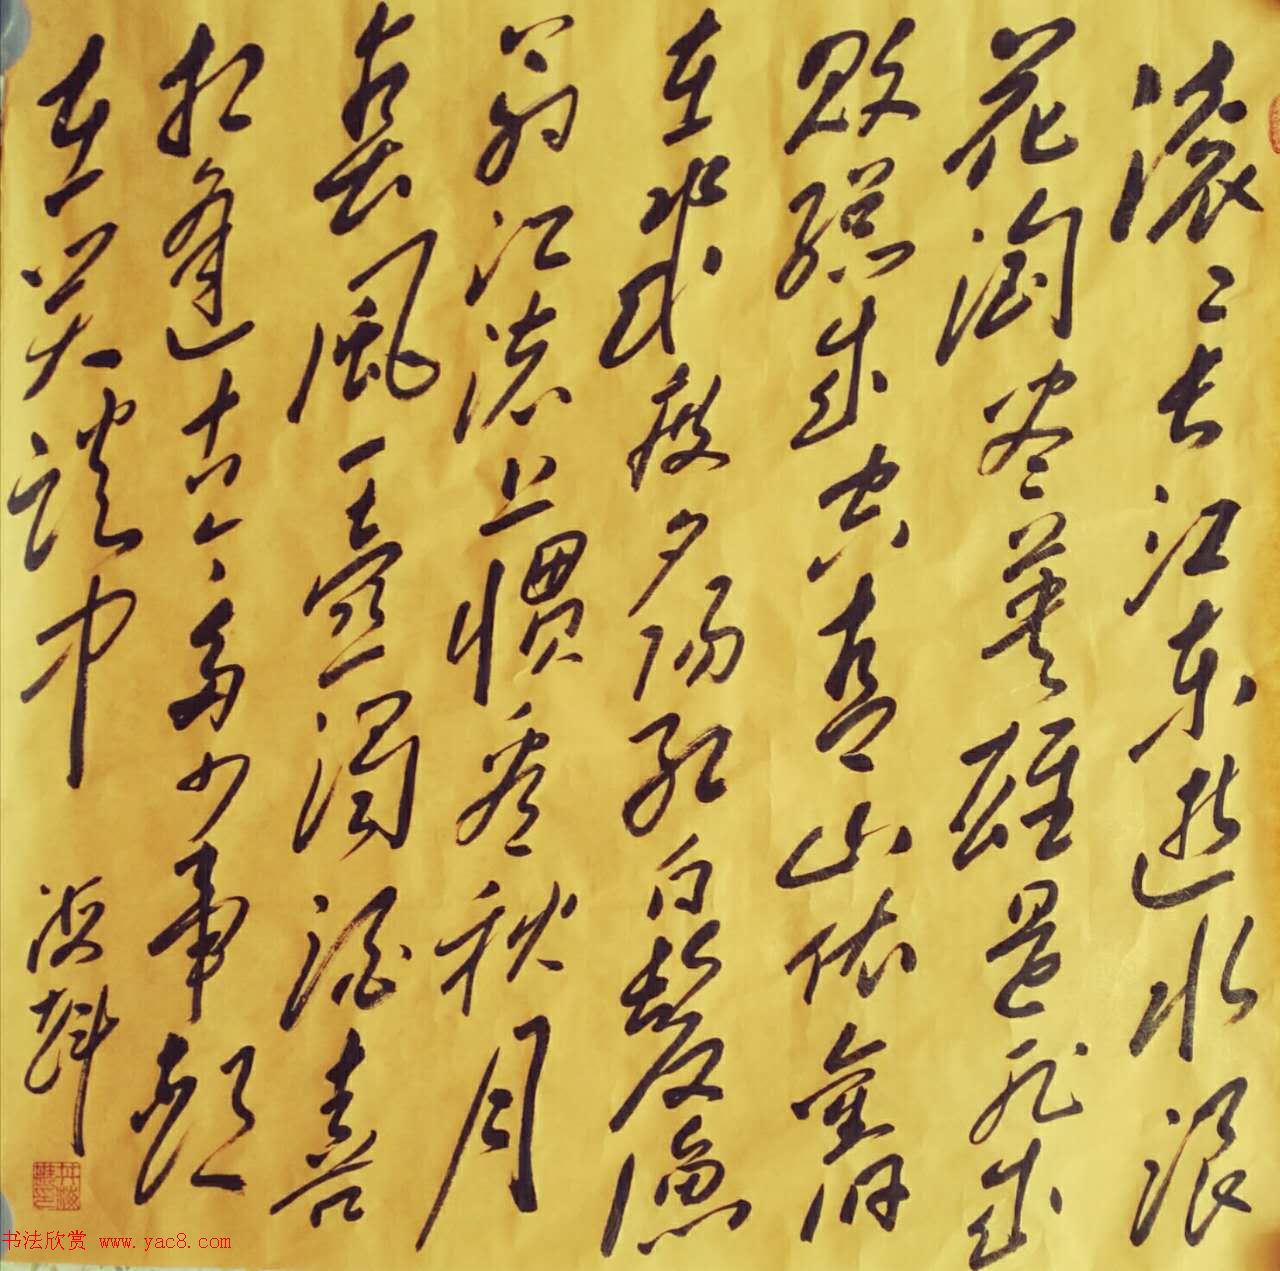 滚〻长江东逝水浪
花淘尽英雄是非成
败總成空青山依舊
在几度夕阳红白髮渔
翁江渚上惯看秋月
春風一壶浊酒喜
相逢古今多少事都
在笑谈中
书法欣赏 www.yac8.com